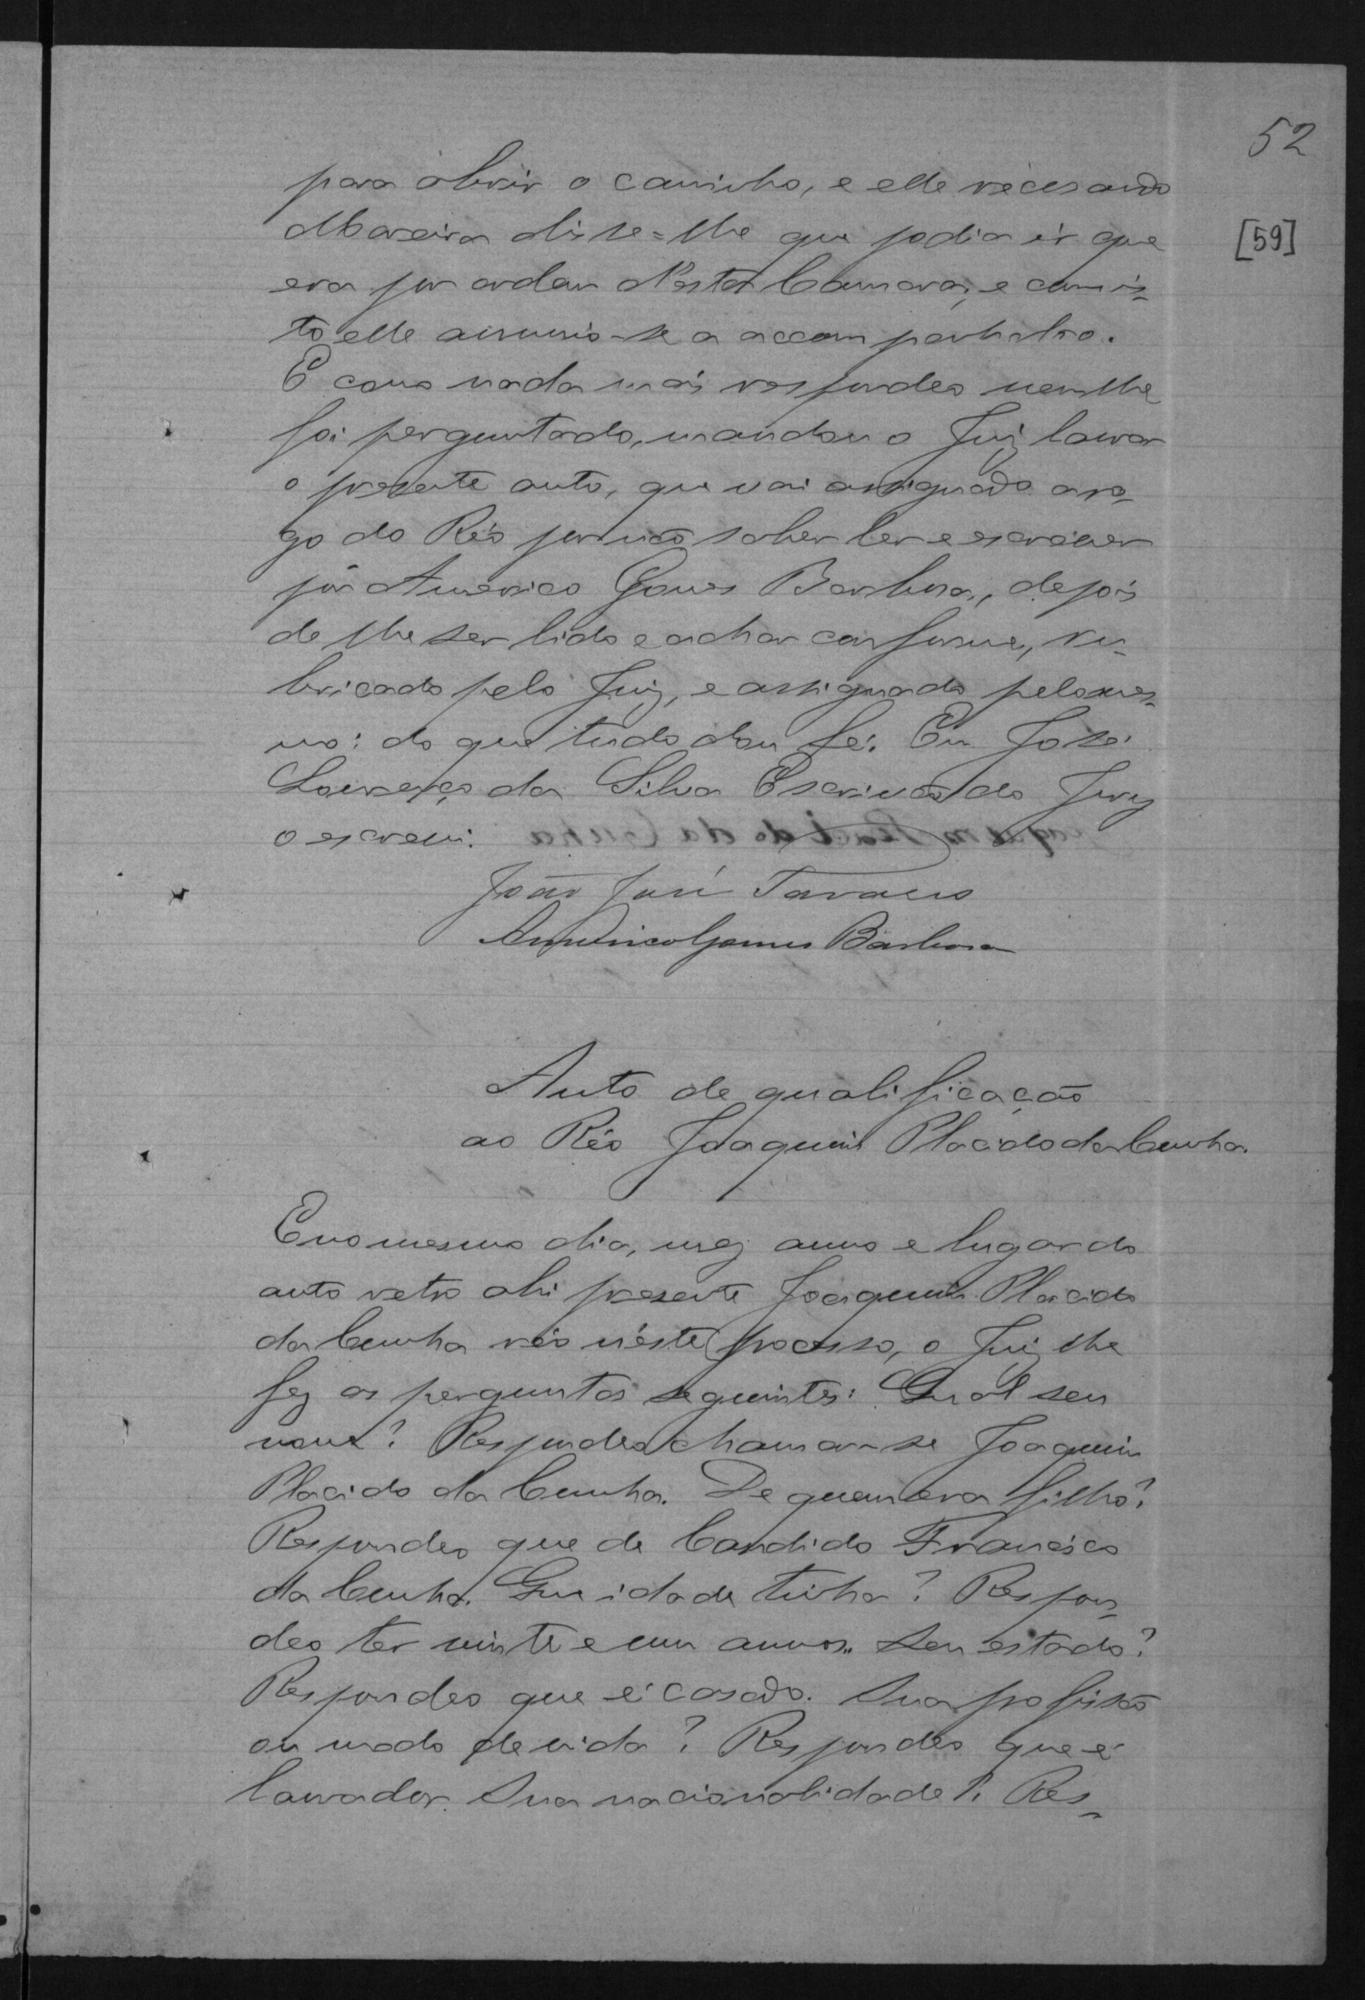 52
[59]
para abrir o caminho, e elle recusando
Moreira disse-lhe que podia ir que
era por ordem d'esta Camara, e com is-
to elle annuio-se a accompanhalro.
E como nada mais respondeo nem lhe
foi perguntado, mandou o Juiz lavrar
o presente auto, que vai assignado aro-
go do Réo por não saber ler e escrever
por Americo Gomes Barbosa, depois
de lhe ser lido e achar conforme, ru-
bricado pelo Juiz, e assignado pelo mes-
mo: do que tudo dou fé. Eu José
Lourenço da Silva Escrivão do Jury
o escrevi.
João José Tavares
Americo Gomes Barbosa
Auto de qualificação
ao Réo Joaquim Placido da Cunha.
E no mesmo dia, mez anno e lugar do
auto retro ahi presente Joaquim Placido
da Cunha réo n'éste processo, o Juiz lhe
fez as perguntas seguintes: Qual seu
nome? Respondeo chamar-se Joaquim
Placido da Cunha. De quem era filho?
Respondeo que de Candido Francisco
da Cunha. Que idade tinha? Respon-
deo ter vinte e um annos. Seu estado?
Respondeo que é casado. Sua profissão
ou modo de vida? Respondeo que é
lavrador. Sua nacionalidade? Res-